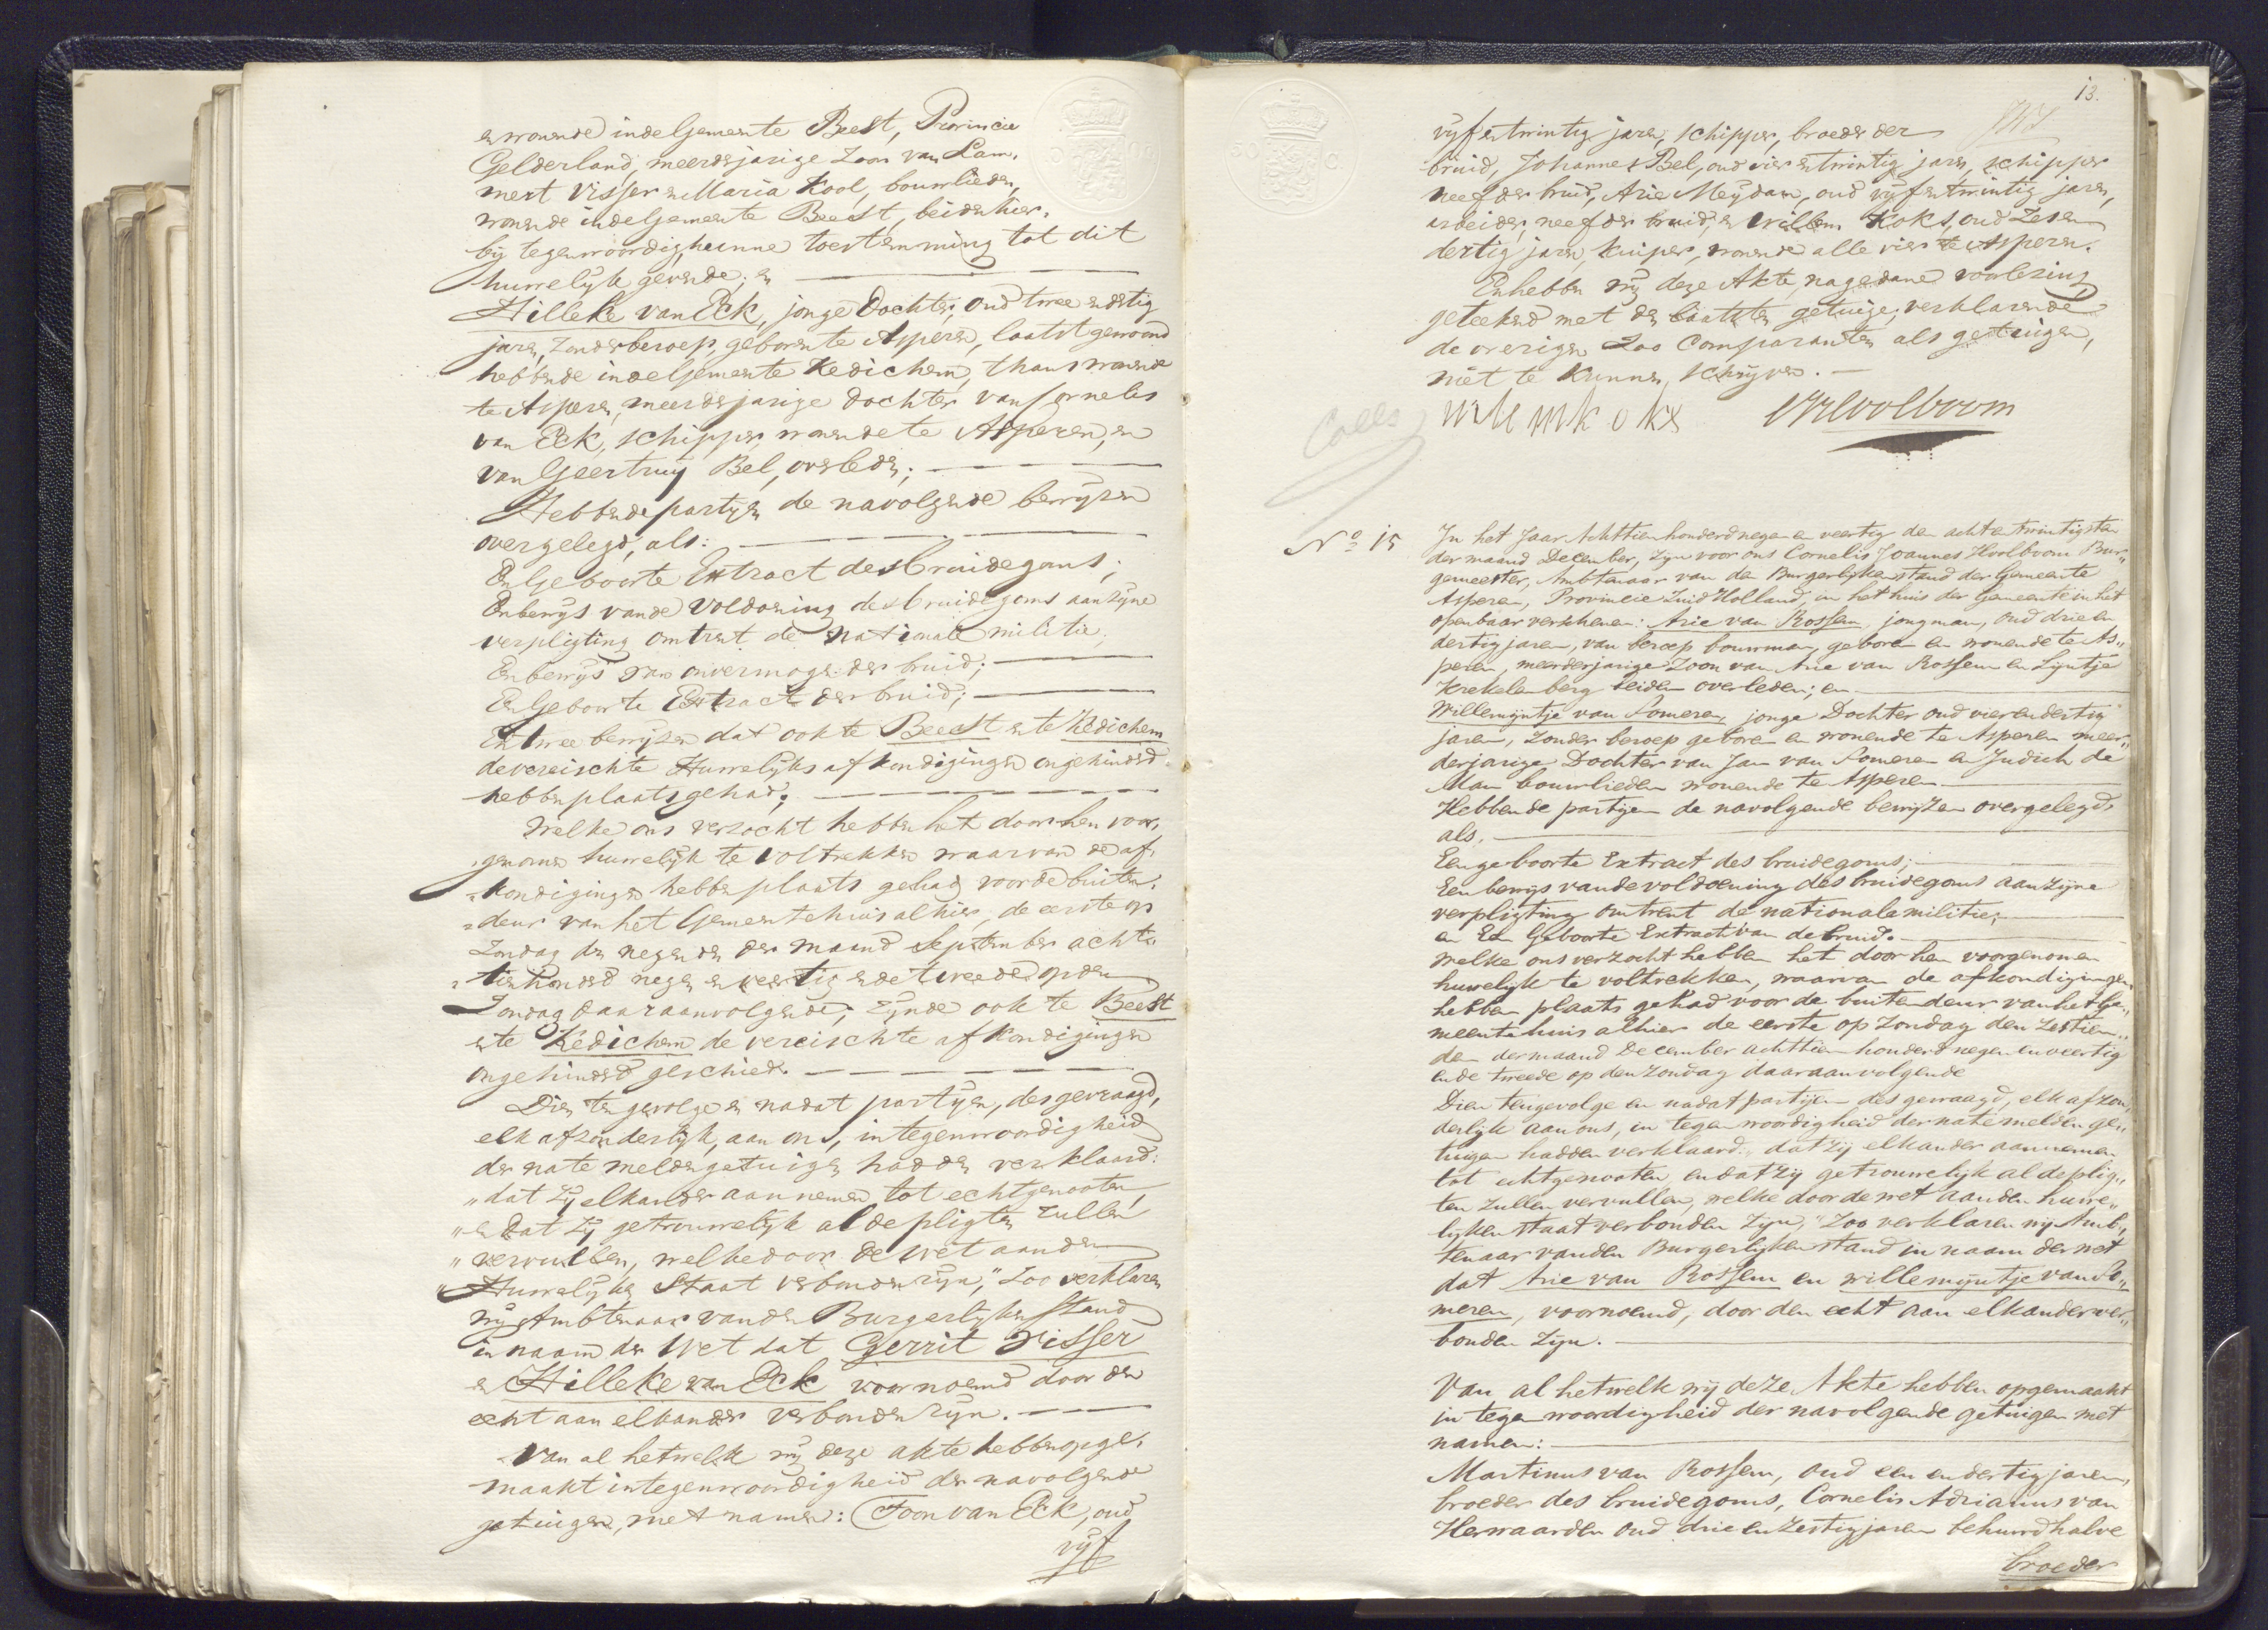 en wonende in de Gemeente Beest, Provincie
Gelderland, meerderjarige Zoon van Lam„
mert Visser en Maria Kool, bouwlieden,
wonende in de Gemeente Beest, beiden hier„
bij tegenwoordig, hunne toestemming tot dit
huwelijk gevende; en
Hilleke van Eck, jonge Dochter, oud twee en dertig
jaren, Zonder beroep, geboren te Asperen, laatst gewoond
hebbende in de Gemeente Kedichem, thans wonende
te Asperen, meerderjarige dochter van Cornelis
van Eck, schipper, wonende te Asperen, en
van Geertruy Bel, overleden;
Hebbende partijen de navolgende bewijzen
overgelegd, als:
Een Geboorte Extract des bruidegoms;
Een bewijs van de voldoening des bruidegoms aan zijne
verpligting omtrent de nationale militie;
Een bewijs van onvermogen der bruid;
Een Geboorte Extract der bruid;
En twee bewijzen dat ook te Beest en te Kedichem
de vereischte Huwelijks afkondigingen ongehinderd
hebben plaats gehad;
Welke ons verzocht hebben het door hen voor„
„genomen huwelijk te voltrekken waarvan de af„
„kondigingen hebben plaats gehad voor de buiten„
„deur van het Gemeentehuis alhier, de eerste op
Zondag den negenden der maand September acht„
„tienhonderd negen en veertig en de tweede op den
Zondag daaraanvolgende; zijnde ook te Beest
en te Kedichem de vereischte afkondigingen
ongehinderd geschied.
Dien ten gevolge en nadat partijen, des gevraagd,
elk afzonderlijk, aan ons, in tegenwoordigheid
der nate melden getuigen hadden verklaard:
„dat zij elkander aannemen tot echtgenooten,
„en dat zij getrouwelijk al de pligten zullen
„vervullen, welke door de wet aan den
„Huwelijken Staat verbonden zijn," Zoo verklaren
wij Ambtenaar van den Burgerlijken Stand
in naam der Wet dat Gerrit Visser
en Hilleke van Eck voornoemd door den
echt aan elkander verbonden zijn.
Van al hetwelk wij deze akte hebben opge„
maakt in tegenwoordigheid der navolgende
getuigen, met namen: Toon van Eck, oud
vijf
13.
vijf en twintig jaren, schipper, broeder der
bruid, Johannes Bel, oud vier en twintig jaren, schipper
neef der bruid, Arie Meydam, oud vijf en twintig jaren,
arbeider, neef der bruid, en Willem Koks, oud zes en
dertig jaren, kuiper, wonende alle vier te Asperen.
En hebben wij deze Akte, na gedane voorlezing
geteekend met den laatsten getuige; verklarende
de overigen Zoo Comparanten als getuigen,
niet te kunnen schrijven.
willemkoks CJHvolboom
Coll
No 15 In het Jaar Achttienhonderd negen en veertig den acht en twintigsten
der maand December, zijn voor ons Cornelis Joannes Hvolboom Bur„
gemeester, Ambtenaar van den Burgerlijken stand der Gemeente
Asperen, Provincie Zuid Holland, in het huis der Gemeente in het
openbaar verschenen: Arie van Rossem, jongman, oud drie en
dertig jaren, van beroep bouwman, geboren en wonende te As„
peren, meerderjarige Zoon van Arie van Rossem en Lijntje
Krekelenberg beiden overleden; en
Willemijntje van Someren, jonge Dochter oud vier en dertig
jaren, zonder beroep geboren en wonende te Asperen meer„
derjarige Dochter van Jan van Someren en Judich de
Man bouwlieden wonende te Asperen
Hebbende partijen de navolgende bewijzen overgelegd,
als.
Een geboorte Extract des bruidegoms;
Een bewijs van de voldoening des bruidegoms aan zijne
verpligting omtrent de nationale militie;
en Een Geboorte Extract van de bruid.
Welke ons verzocht hebben het door hen voorgenomen
huwelijk te voltrekken, waarvan de afkondigingen
hebben plaats gehad voor de buitendeur van het Ge„
meentehuis alhier de eerste op Zondag den zestien„
den der maand December achttien honderd negen en veertig
en de tweede op den Zondag daaraanvolgende
Dien tengevolge en nadat partijen des gevraagd, elk afzon„
derlijk aan ons, in tegenwoordigheid der nate melden ge„
tuigen hadden verklaard: „dat zij elkander aannemen
tot echtgenooten, en dat zij getrouwelijk al de plig„
ten zullen vervullen, welke door de wet aan den huwe„
lijken staat verbonden zijn," Zoo verklaren wij Amb„
tenaar van den Burgerlijken stand in naam der wet
dat Arie van Rossem en Willemijntje van So„
meren, voornoemd, door den echt aan elkander ver„
bonden zijn.
Van al hetwelk wij deze Akte hebben opgemaakt
in tegenwoordigheid der navolgende getuigen met
namen:
Martinus van Rossem, oud een en dertig jaren,
broeder des bruidegoms, Cornelis Adrianus van
Herwaarden oud drie en zestig jaren behuwd halve
broeder